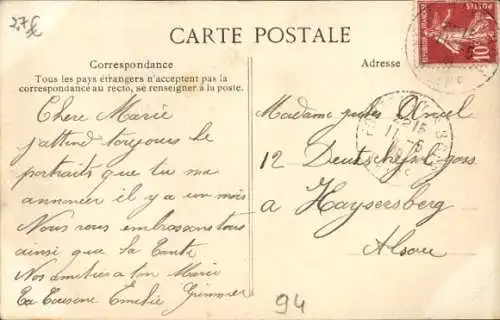 2,7€
CARTE POSTALE
Correspondance
Tous les pays étrangers n'acceptent pas la
correspondance au recto, se renseigner à la poste.
Adresse
REPUBLIQUE FRANÇAISE
10c
Chere Marie
j'attend toujours le
portraits que tu ma
annoncer il y a un mois
Nous vous embrassons tous
ainsi que la Tante
Nos amitiées a ton Marie
Ta Cousine Emelie
Madame jules
12 Deutschehof gass
a Kaysersberg
Alsace
2*15
11-5
94